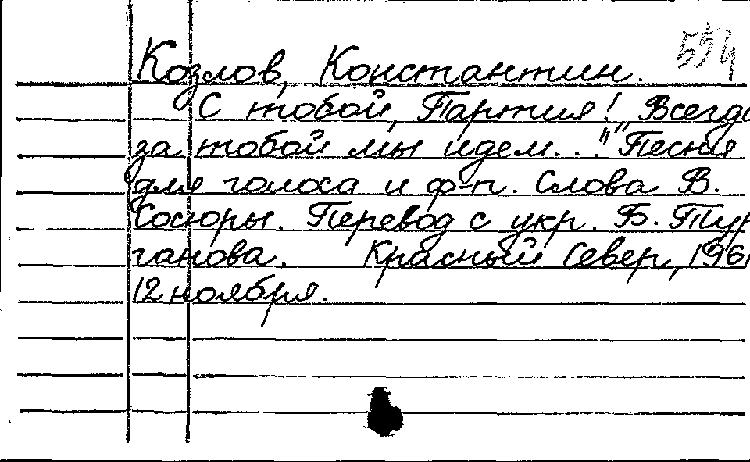 554
Козлов, Константин.
С тобой, Партия! „Всегда
за тобой мы идем..." Песня
для голоса и ф-п. Слова В.
Сосюры. Перевод с укр. Б. Тур
ганова. Красный Север, 196
12 ноября.